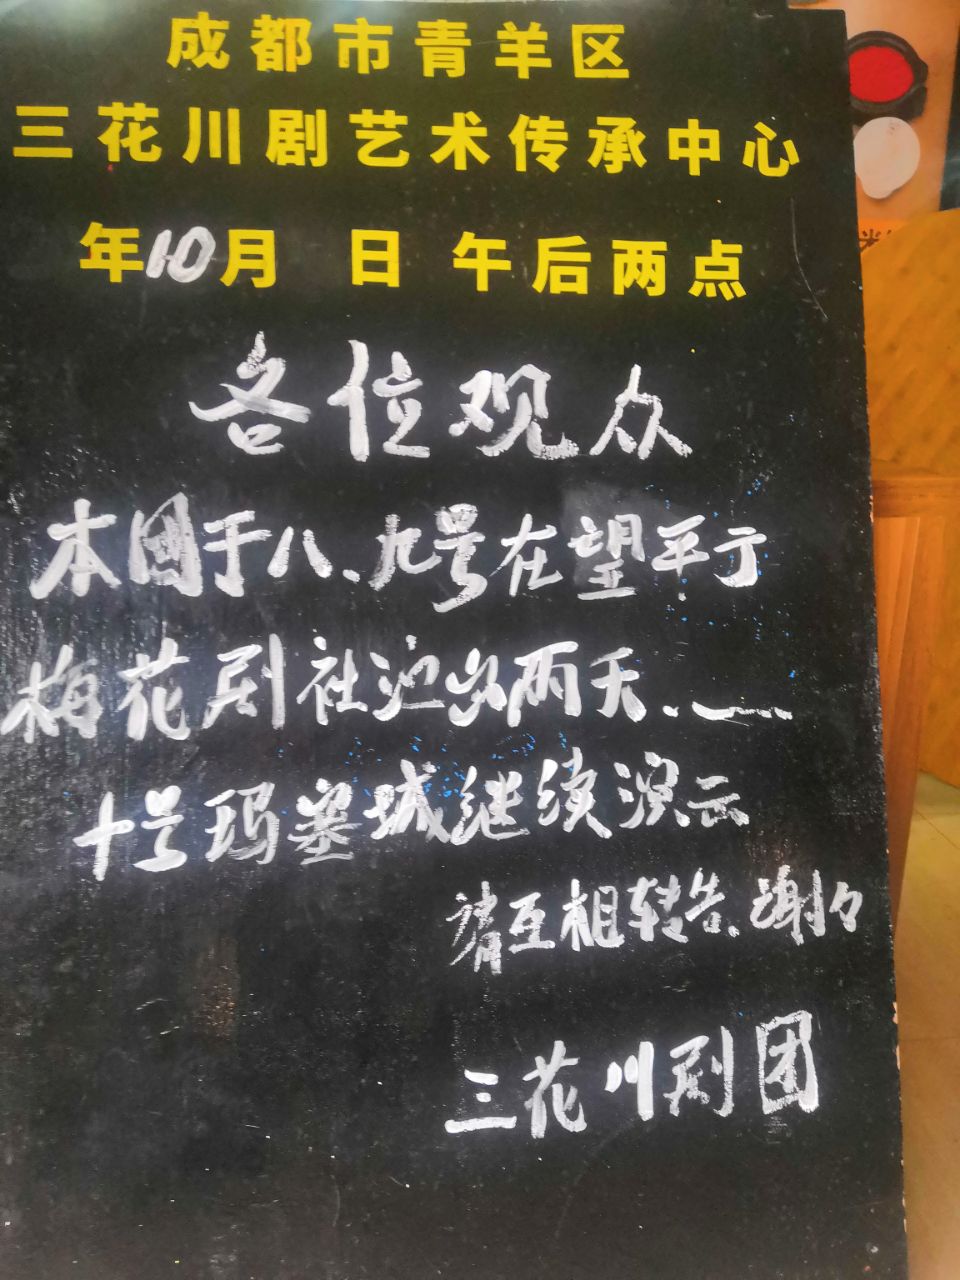 成都市青羊区
三花川剧艺术传承中心
年10月 日 午后两点
各位观众
本團于八、九号在望平于
梅花剧社边出两天.一
十号玛塞城继续演云
请互相转告、谢々
三花川剧团